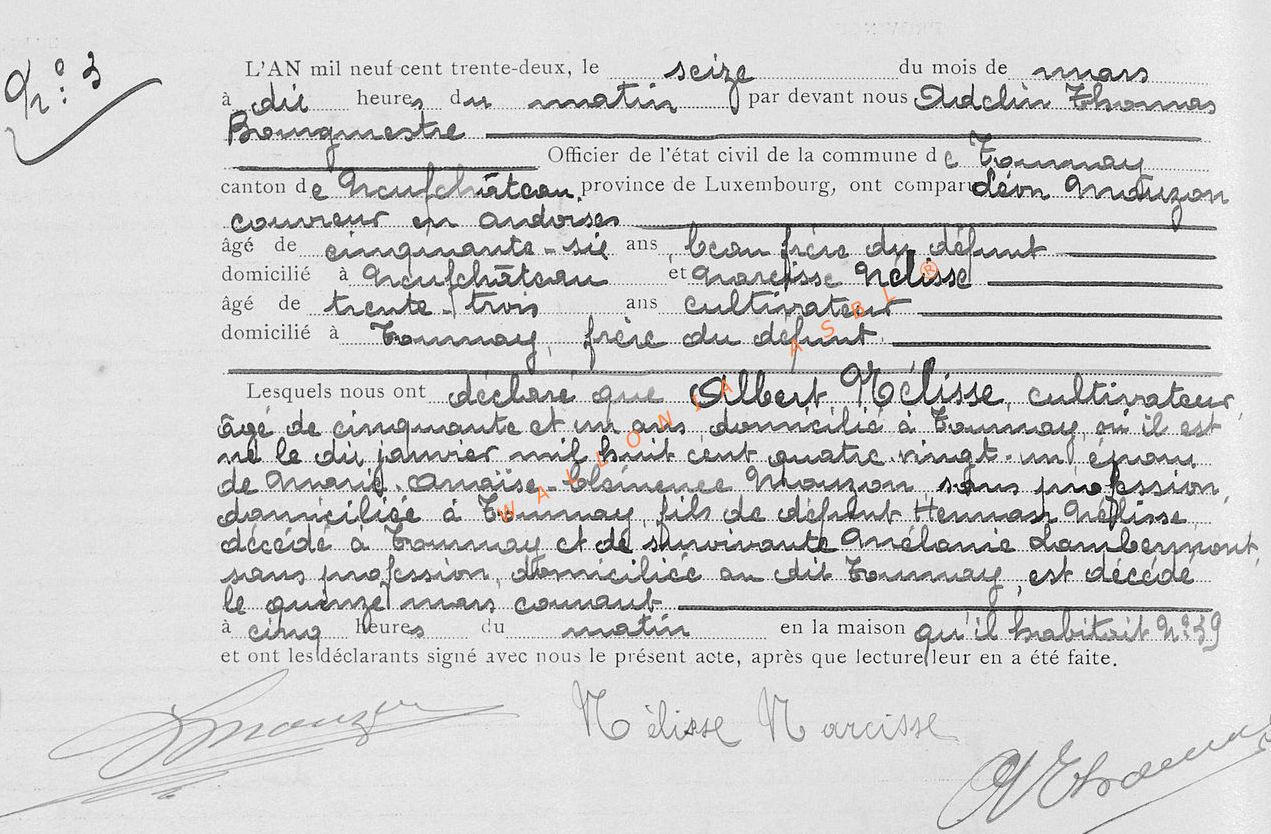 N.º: 3
L'AN mil neuf cent trente-deux, le seize du mois de mars
à dix heures du matin par devant nous Adelin Thomas
Bourgmestre
Officier de l'état civil de la commune de Tournay
canton de Neufchâteau, province de Luxembourg, ont comparu Léon Mauzon
couvreur en ardoises
âgé de cinquante-six ans, beau frère du défunt
domicilié à Neufchâteau et Narcisse Nélisse
âgé de trente-trois ans cultivateur
domicilié à Tournay, frère du défunt
Lesquels nous ont déclaré que Albert Nélisse, cultivateur,
âgé de cinquante et un ans, domicilié à Tournay, où il est
né le du janvier mil huit cent quatre-vingt-un, époux
de Marie-Anaïse-Clémence Mauzon sans profession,
domiciliée à Tournay, fils de défunt Herman Nélisse,
décédé à Tournay et de survivante Mélanie Lambermont,
sans profession, domiciliée au dit Tournay, est décédé
le quinze mars courant
à cinq heures du matin en la maison qu'il habitait N.º 39
et ont les déclarants signé avec nous le présent acte, après que lecture leur en a été faite.
Mauzon Nélisse Narcisse A Thomas
WALLONIA ASBL ®